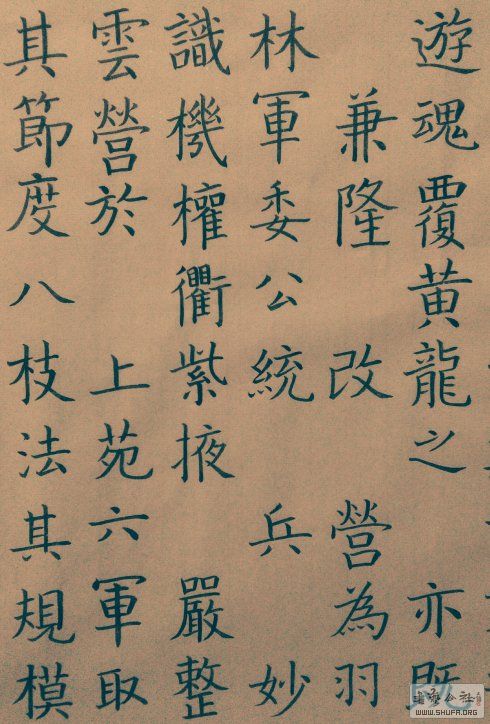 遊魂覆黄龍之 亦既
兼隆 改 營為羽
林軍委公統 兵 妙
識機權衢紫掖 嚴整
雲營於 上苑六軍取
其節度八枝法其規模
WWW.SHUFA.ORG